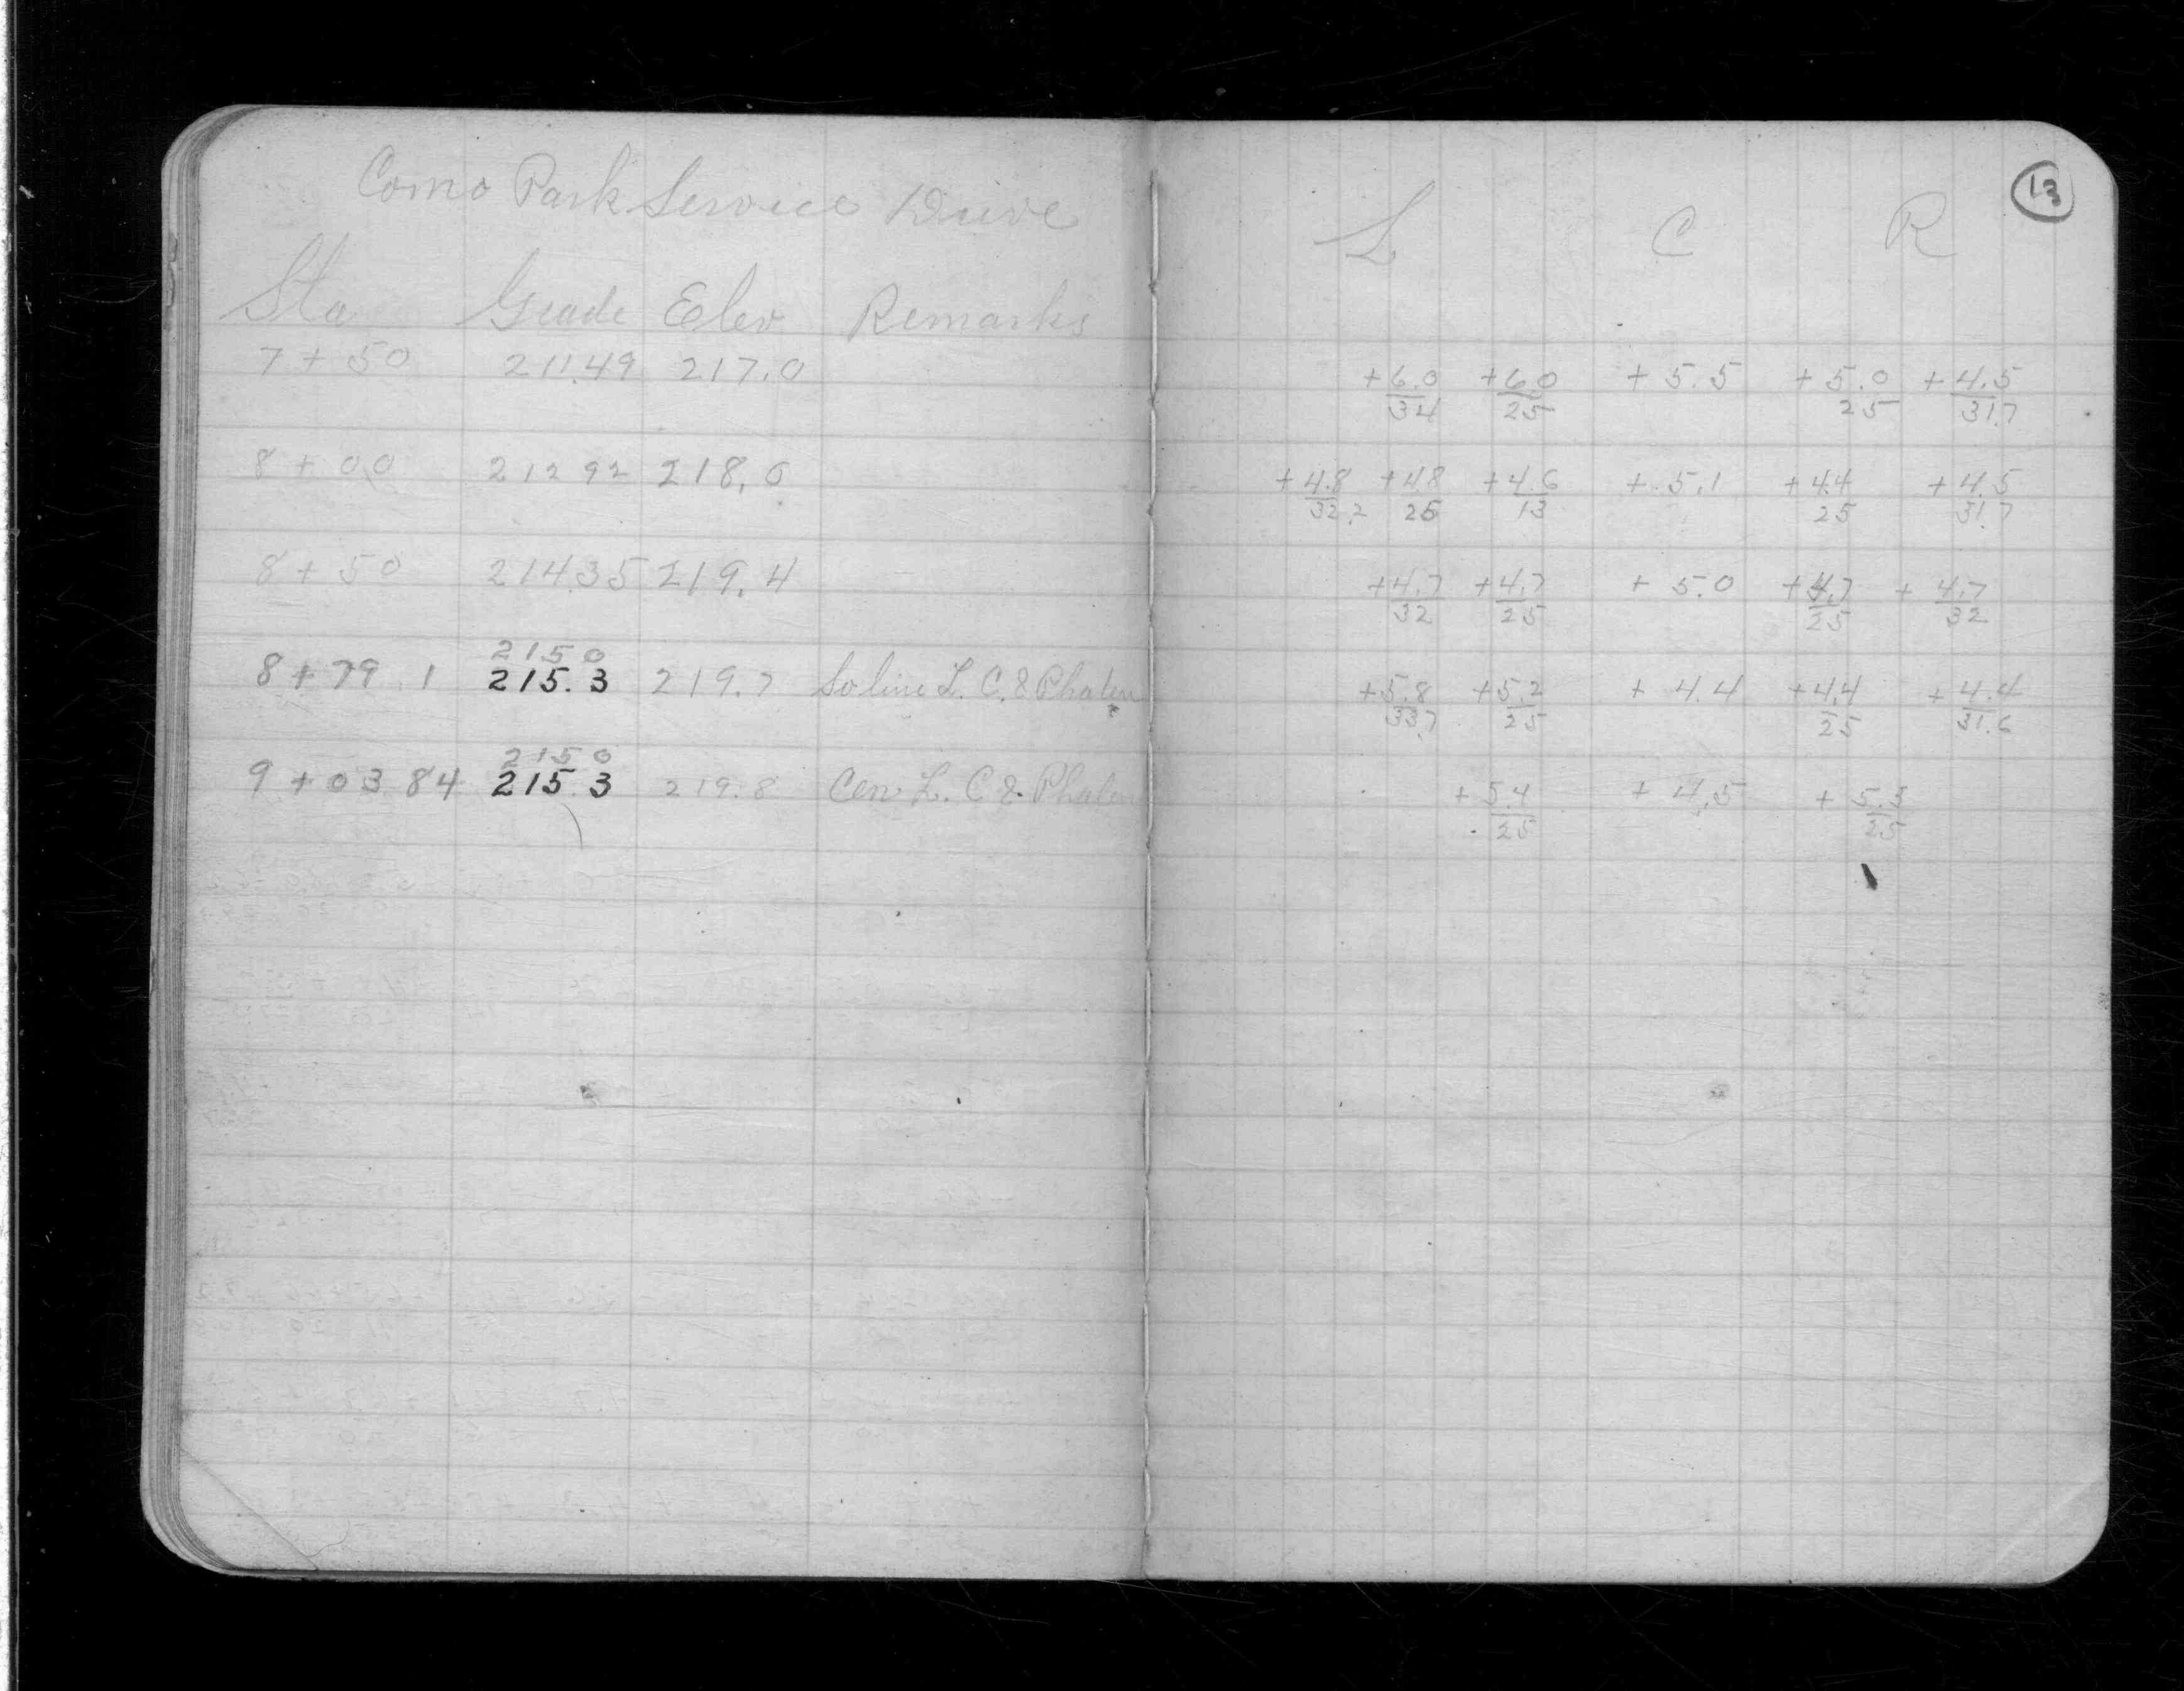 13
Como Park Service Drive
L C R
Sta Grade Elev Remarks
7 + 50 211.49 217.0
+6.0 +6.0 + 5.5 + 5.0 + 4.5
34 25 25 31.7
8 + 00 212 92 218.0
+4.8 +4.8 +4.6 + 5.1 +4.4 +4.5
32.2 25 13 25 31.7
8 + 50 214.35 219.4
+4.7 +4.7 + 5.0 +4.7 + 4.7
32 25 25 32
215 0
8 + 79 1 215.3 219.7 So line L. C. & Phalen
+5.8 +5.2 + 4.4 +4.4 +4.4
33.7 25 25 31.6
215 0
9 + 03 84 215.3 219.8 Cen L. C & Phalen
+ 5.4 + 4.5 + 5.3
25 25